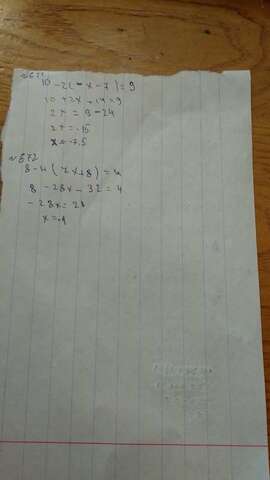 №671
10 - 2(-x-7)=9
10 + 2x + 14 = 9
2x = 9 - 24
2x = -15
x = -7.5
№672
8-4(7x+8)=4
8 - 28x - 32 = 4
- 28x = 28
x = -1